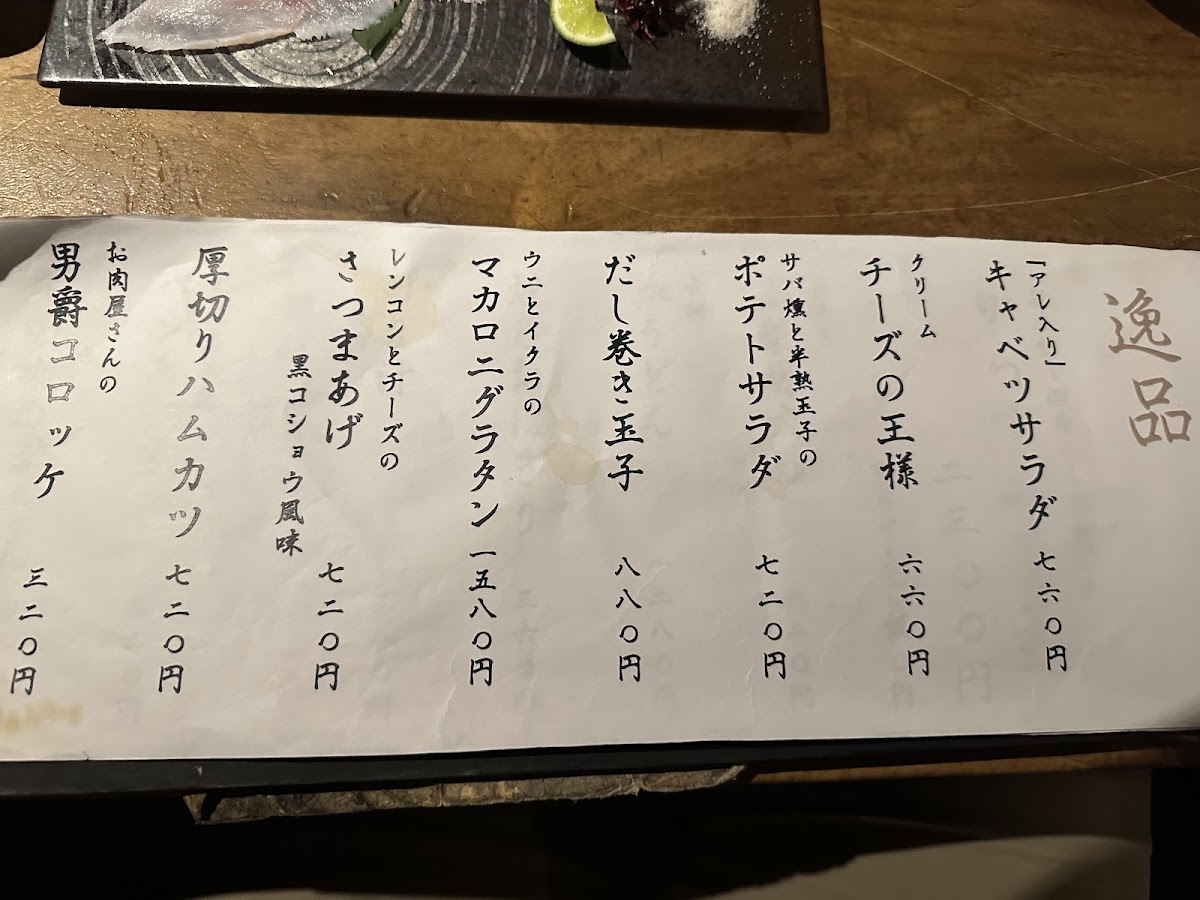 逸品
「アレ入り」
キャベツサラダ 七六〇円
クリーム
チーズの王様 六六〇円
サバ燻と半熟玉子の
ポテトサラダ 七二〇円
だし巻き玉子 八八〇円
ウニとイクラの
マカロニグラタン 一五八〇円
レンコンとチーズの
さつまあげ 七二〇円
黒コショウ風味
厚切りハムカツ 七二〇円
お肉屋さんの
男爵コロッケ 三二〇円